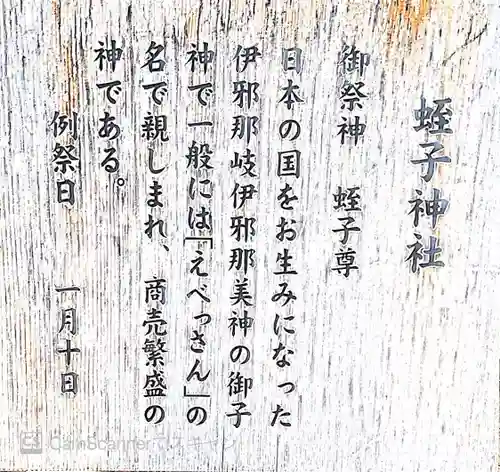 蛭子神社
御祭神　蛭子尊
日本の国をお生みになった
伊邪那岐伊邪那美神の御子
神で一般には「えべっさん」の
名で親しまれ、商売繁盛の
神である。
例祭日　一月十日
CS CamScannerでスキャン